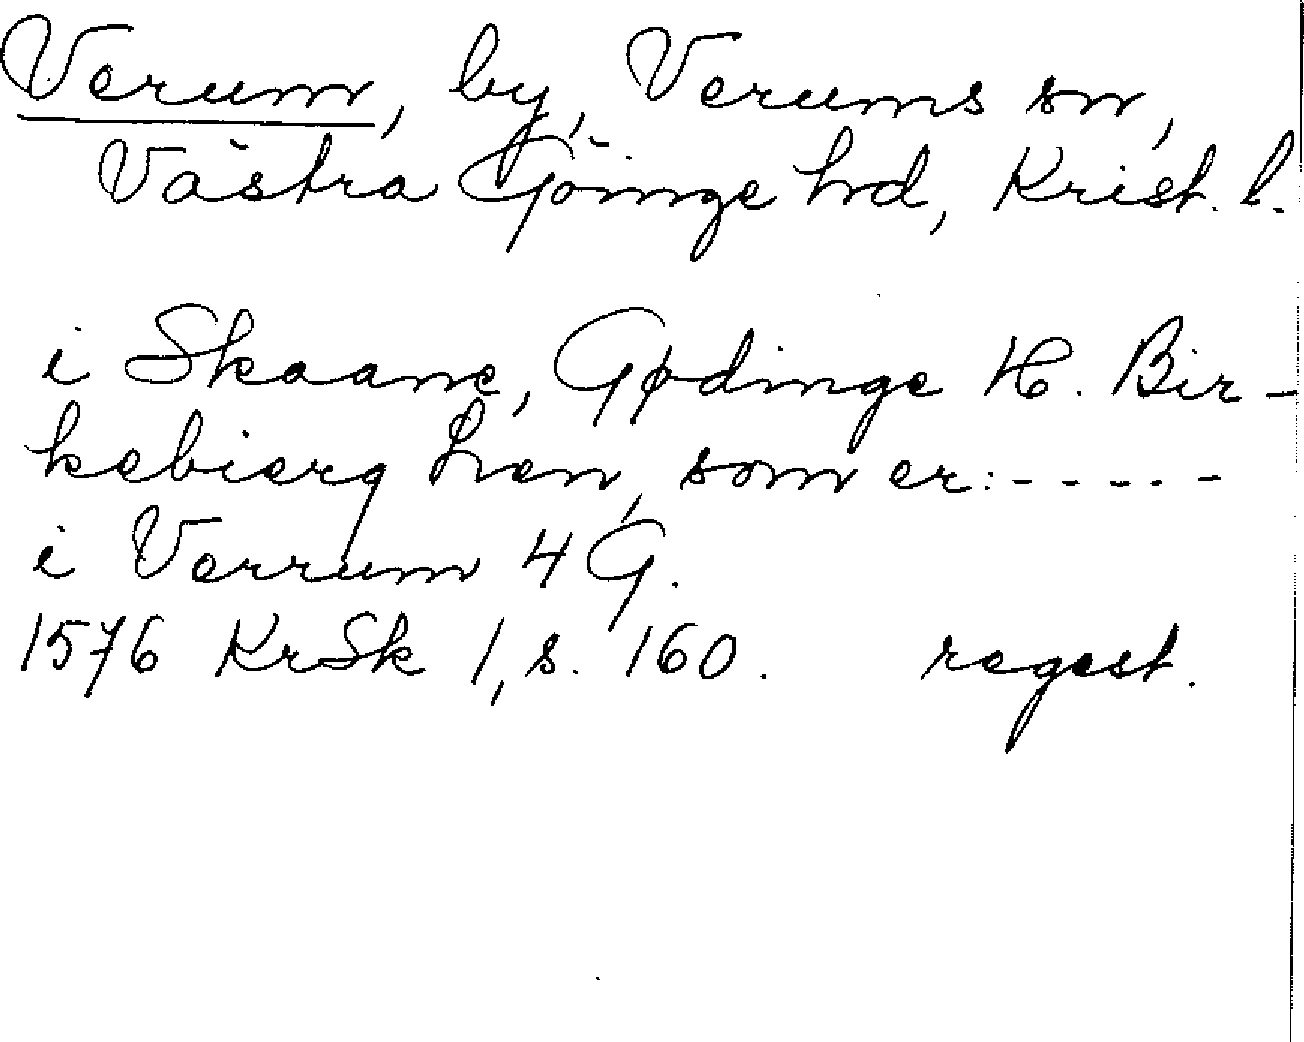 Verum, by, Verums sn,
Västra Göinge hd, Krist. l.
i Skaane, Gødinge H. Bir-
kebierg Len, som er:-----
i Verrum 4 G.
1576 KrSk 1, s. 160. regest.